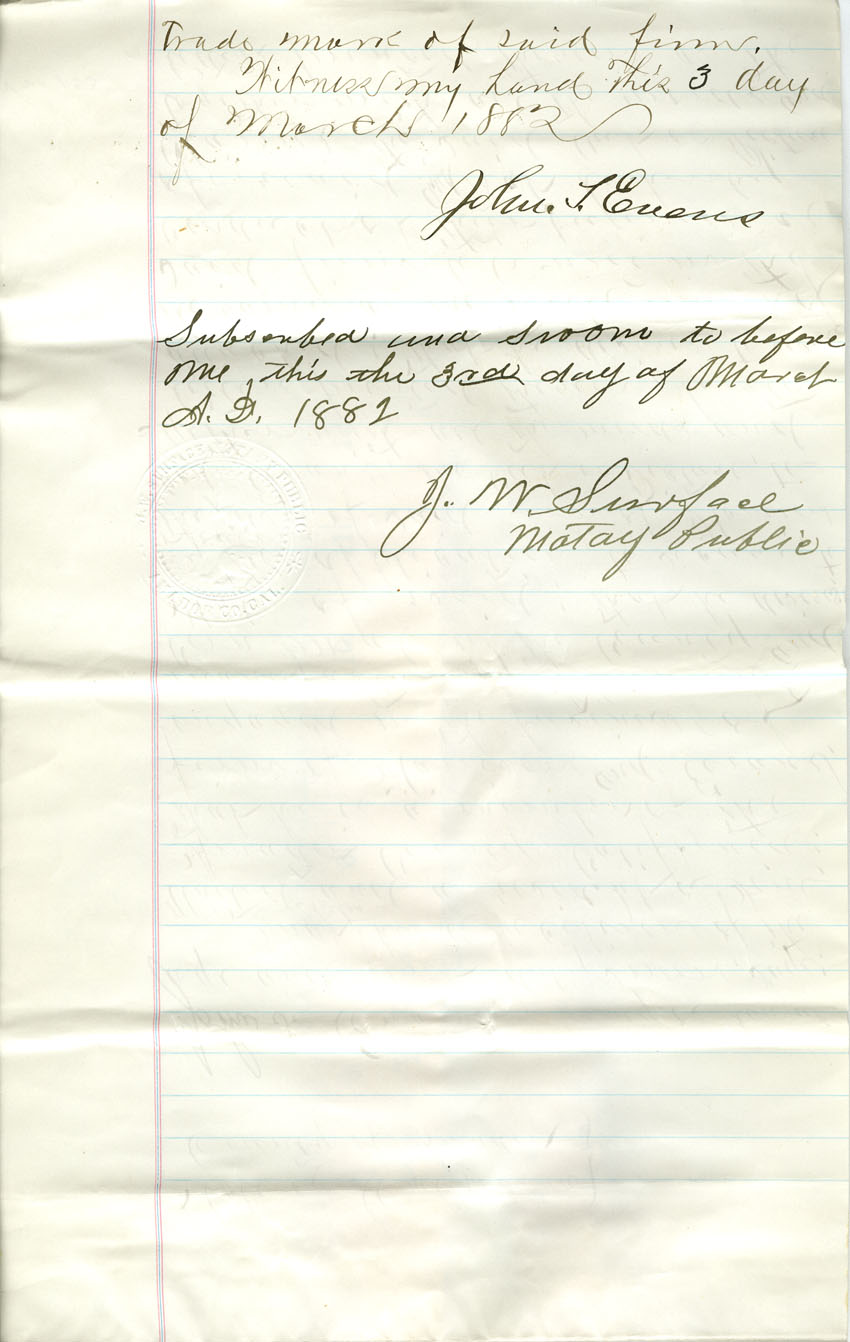 Trade mark of said firm.
Witness my hand this 3 day
of March 1882
John T. Evans
Subscribed and sworn to before
me, this the 3rd day of March
A.D. 1882
J. W. Surface
Notay Public